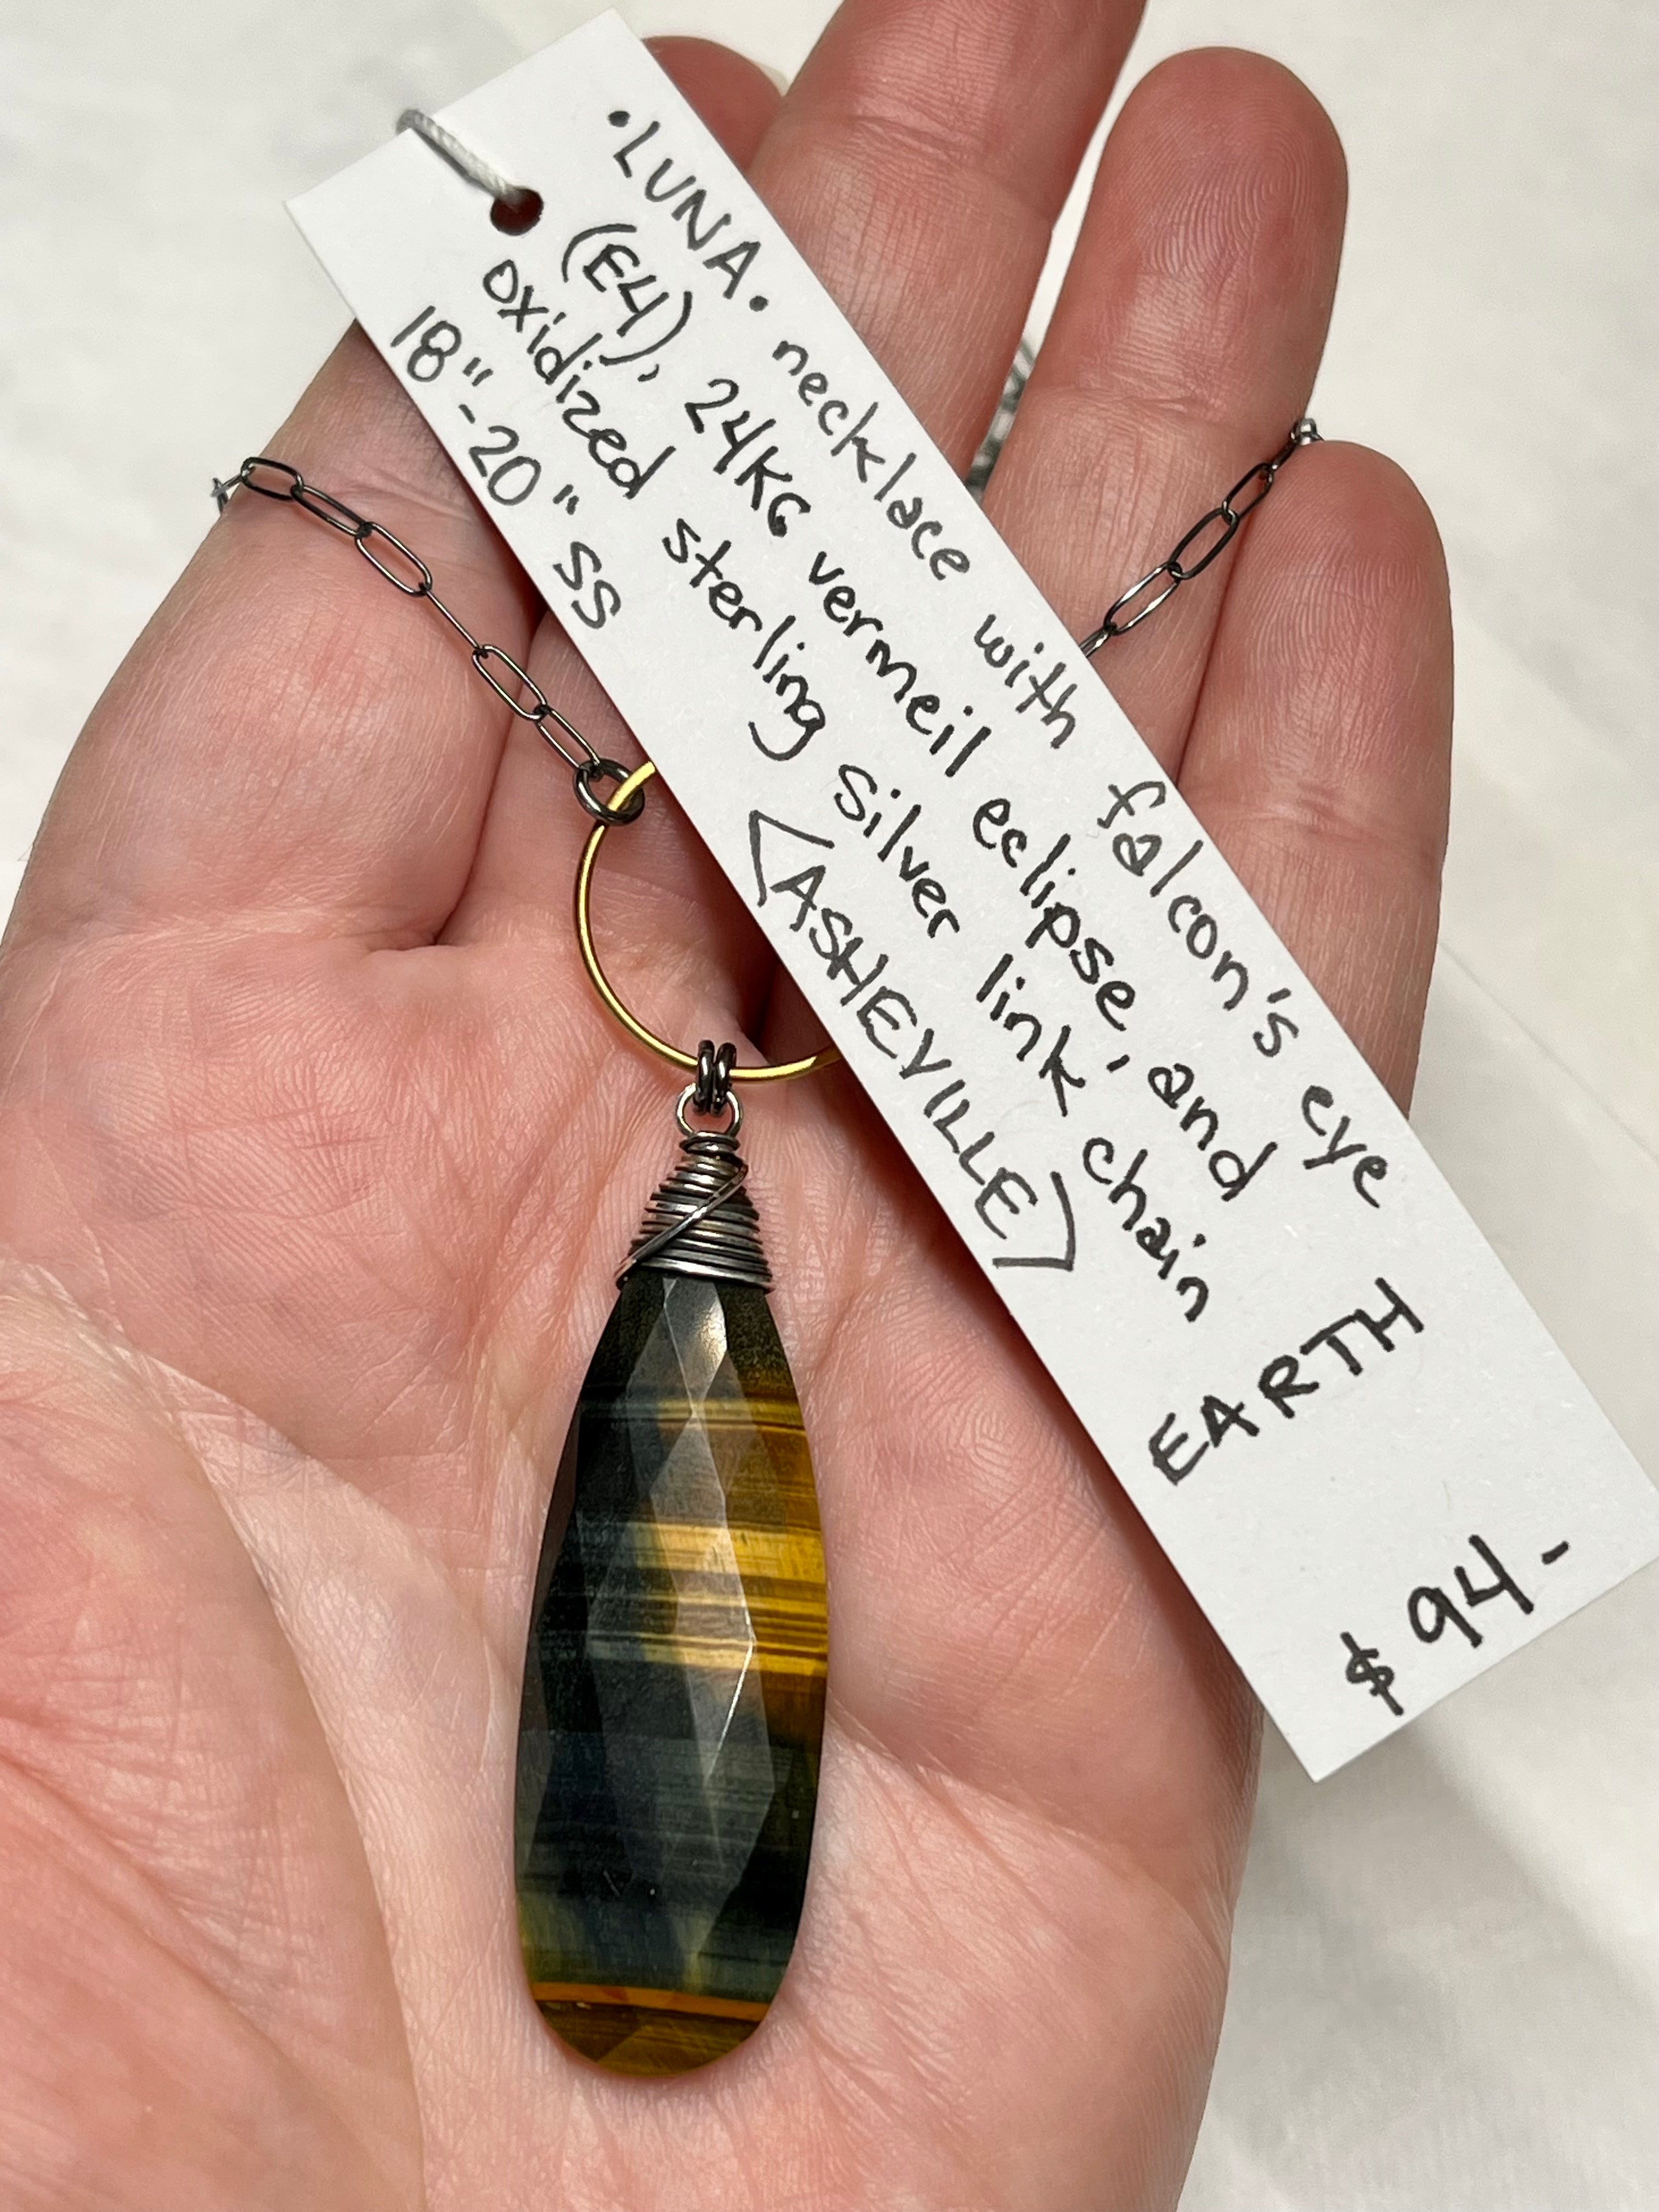 •LUNA• necklace with falcon's eye
(E4), 24KG vermeil eclipse, and
oxidized sterling silver link chain
18"-20" SS
<ASHEVILLE>
EARTH
$94-